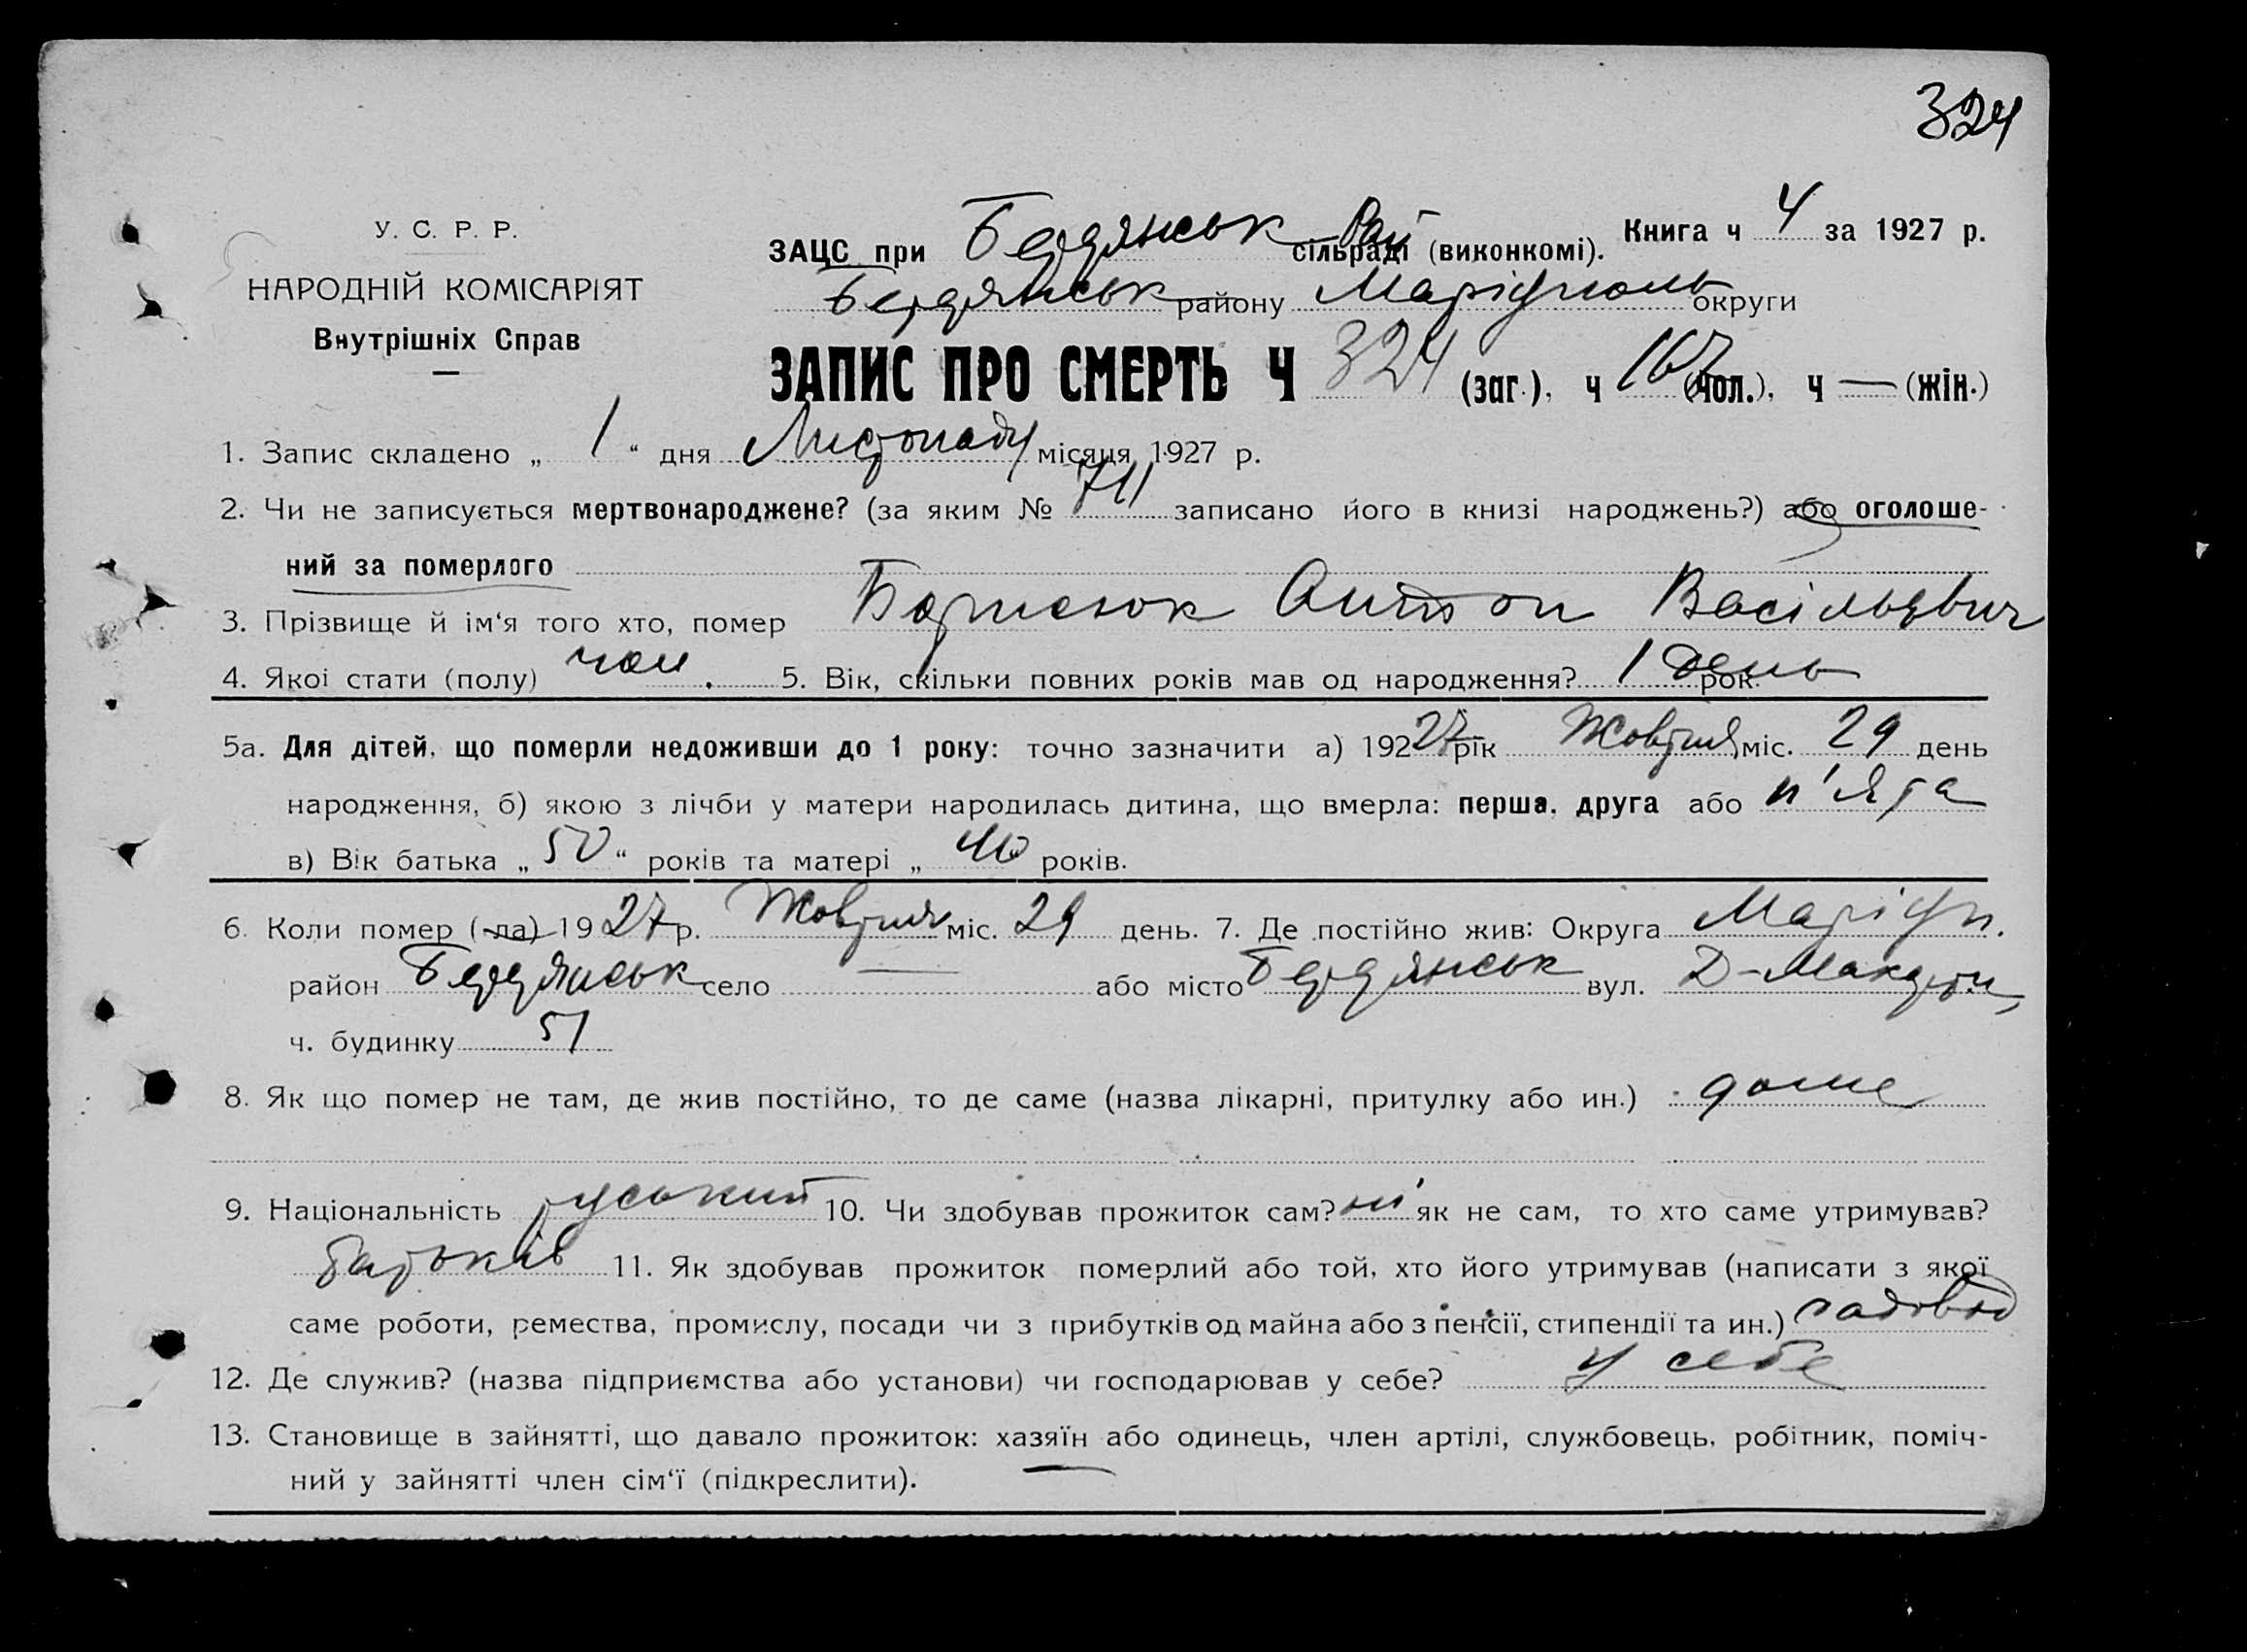 324
У. С. Р. Р.
НАРОДНІЙ КОМІСАРІЯТ
Внутрішніх Справ
ЗАЦС при Бердянськ Рай сільраді (виконкомі). Книга ч 4 за 1927 р.
Бердянськ району Маріуполь округи
ЗАПИС ПРО СМЕРТЬ Ч 324 (заг.), ч 167 (чол.), ч — (жін.)
1. Запис складено „ 1 “ дня Листопаду місяця 1927 р.
2. Чи не записується мертвонароджене? (за яким № 711 записано його в книзі народжень?) або оголоше-
ний за померлого
3. Прізвище й ім‘я того хто, помер Борисюк Антон Васільевич
4. Якоі стати (полу) чол. 5. Вік, скільки повних років мав од народження? 1 день рок.
5а. Для дітей, що померли недоживши до 1 року: точно зазначити а) 192 27 рік Жовтня міс. 29 день
народження, б) якою з лічби у матери народилась дитина, що вмерла: перша, друга або п'ята
в) Вік батька „ 50 “ років та матері „ 40 років.
6. Коли помер (-ла) 1927 р. Жовтня міс. 29 день. 7. Де постійно жив: Округа Маріуп.
район Бердянськ село — або місто Бердянськ вул.
ч. будинку 51
8. Як що помер не там, де жив постійно, то де саме (назва лікарні, притулку або ин.) доме
9. Національність руський 10. Чи здобував прожиток сам? ні як не сам, то хто саме утримував?
батьків 11. Як здобував прожиток померлий або той, хто його утримував (написати з якої
саме роботи, ремества, промислу, посади чи з прибутків од майна або з пенсії, стипендії та ин.) садовод
12. Де служив? (назва підприємства або установи) чи господарював у себе? у себе
13. Становище в зайнятті, що давало прожиток: хазяїн або одинець, член артілі, службовець, робітник, поміч-
ний у зайнятті член сім‘ї (підкреслити).